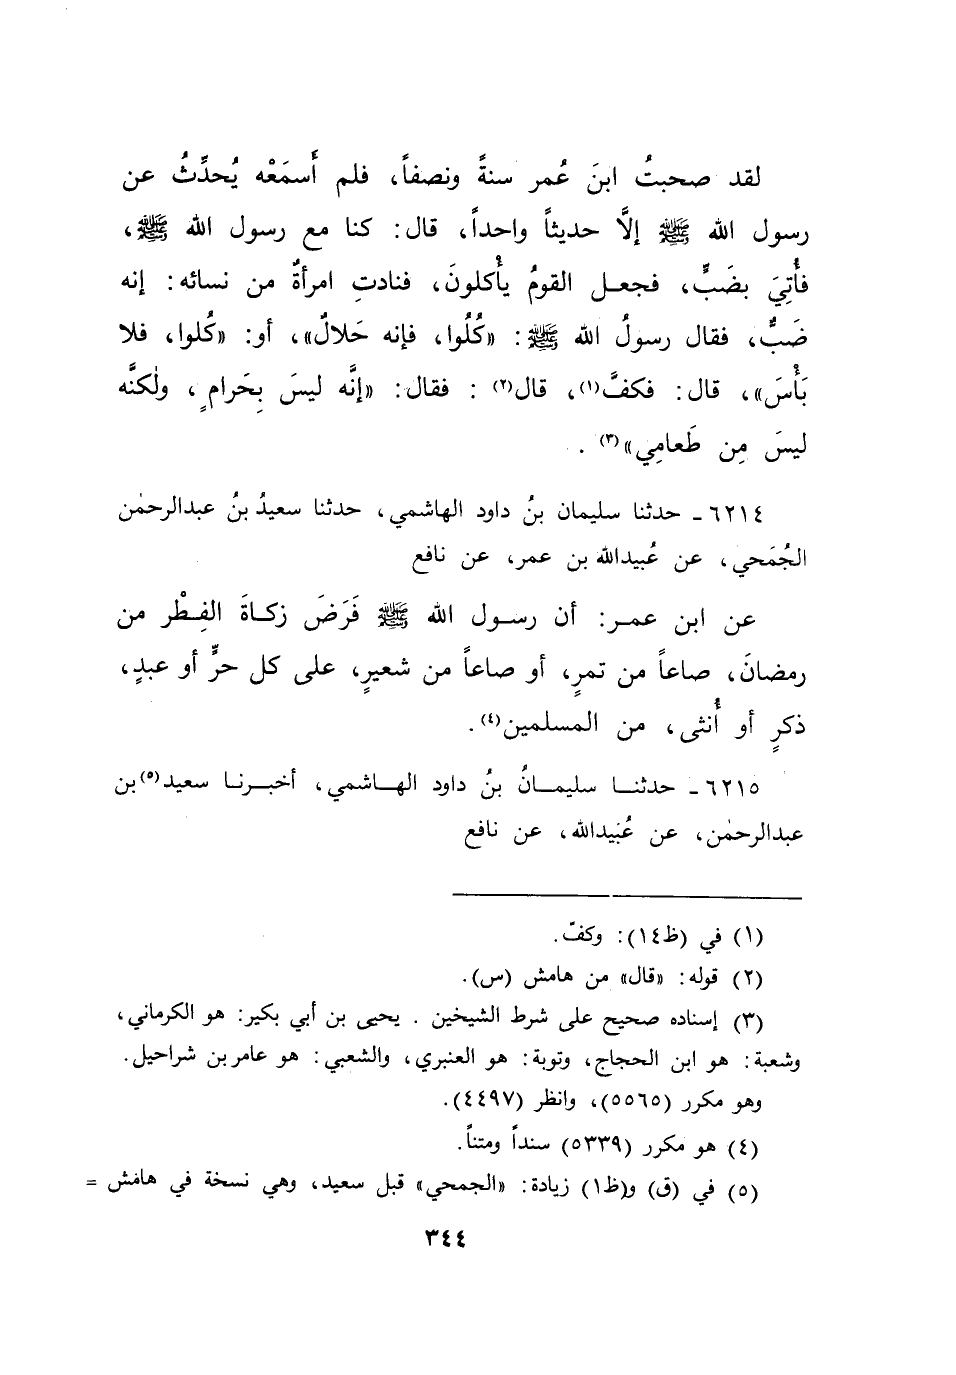 لقد صحبتُ ابنَ عُمر سنةً ونصفاً، فلم أَسمَعْه يُحدِّثُ عن
رسول الله ﷺ إلَّا حديثاً واحداً، قال: كنا مع رسول الله ﷺ،
فأُتِيَ بضَبٍّ، فجعل القومُ يأْكلونَ، فنادتِ امرأةٌ من نسائه: إنه
ضَبٌّ، فقال رسولُ الله ﷺ: «كُلُوا، فإنه حَلالٌ»، أو: «كُلوا، فلا
بَأْسَ»، قال: فكفَّ(١)، قال(٢) : فقال: «إنَّه ليسَ بِحَرامٍ، ولٰكنَّه
ليسَ مِن طَعامِي»(٣) .
٦٢١٤ـ حدثنا سليمان بنُ داود الهاشمي، حدثنا سعيدُ بنُ عبدالرحمٰن
الجُمَحي، عن عُبيدالله بن عمر، عن نافع
عن ابن عمر: أن رسول الله ﷺ فَرَضَ زكاةَ الفِطْر من
رمضانَ، صاعاً من تمرٍ، أو صاعاً من شعيرٍ، على كل حرٍّ أو عبدٍ،
ذكرٍ أو أُنثى، من المسلمين(٤).
٦٢١٥ـ حدثنا سليمانُ بنُ داود الهاشمي، أخبرنا سعيد(٥)بن
عبدالرحمٰن، عن عُبَيدالله، عن نافع
(١) في (ظ١٤): وكفّ.
(٢) قوله: «قال» من هامش (س).
(٣) إسناده صحيح على شرط الشيخين . يحيى بن أبي بكير: هو الكرماني،
وشعبة: هو ابن الحجاج، وتوبة: هو العنبري، والشعبي: هو عامر بن شراحيل.
وهو مكرر (٥٥٦٥)، وانظر (٤٤٩٧).
(٤) هو مكرر (٥٣٣٩) سنداً ومتناً.
(٥) في (ق) و(ظ١) زيادة: «الجمحي» قبل سعيد، وهي نسخة في هامش =
٣٤٤